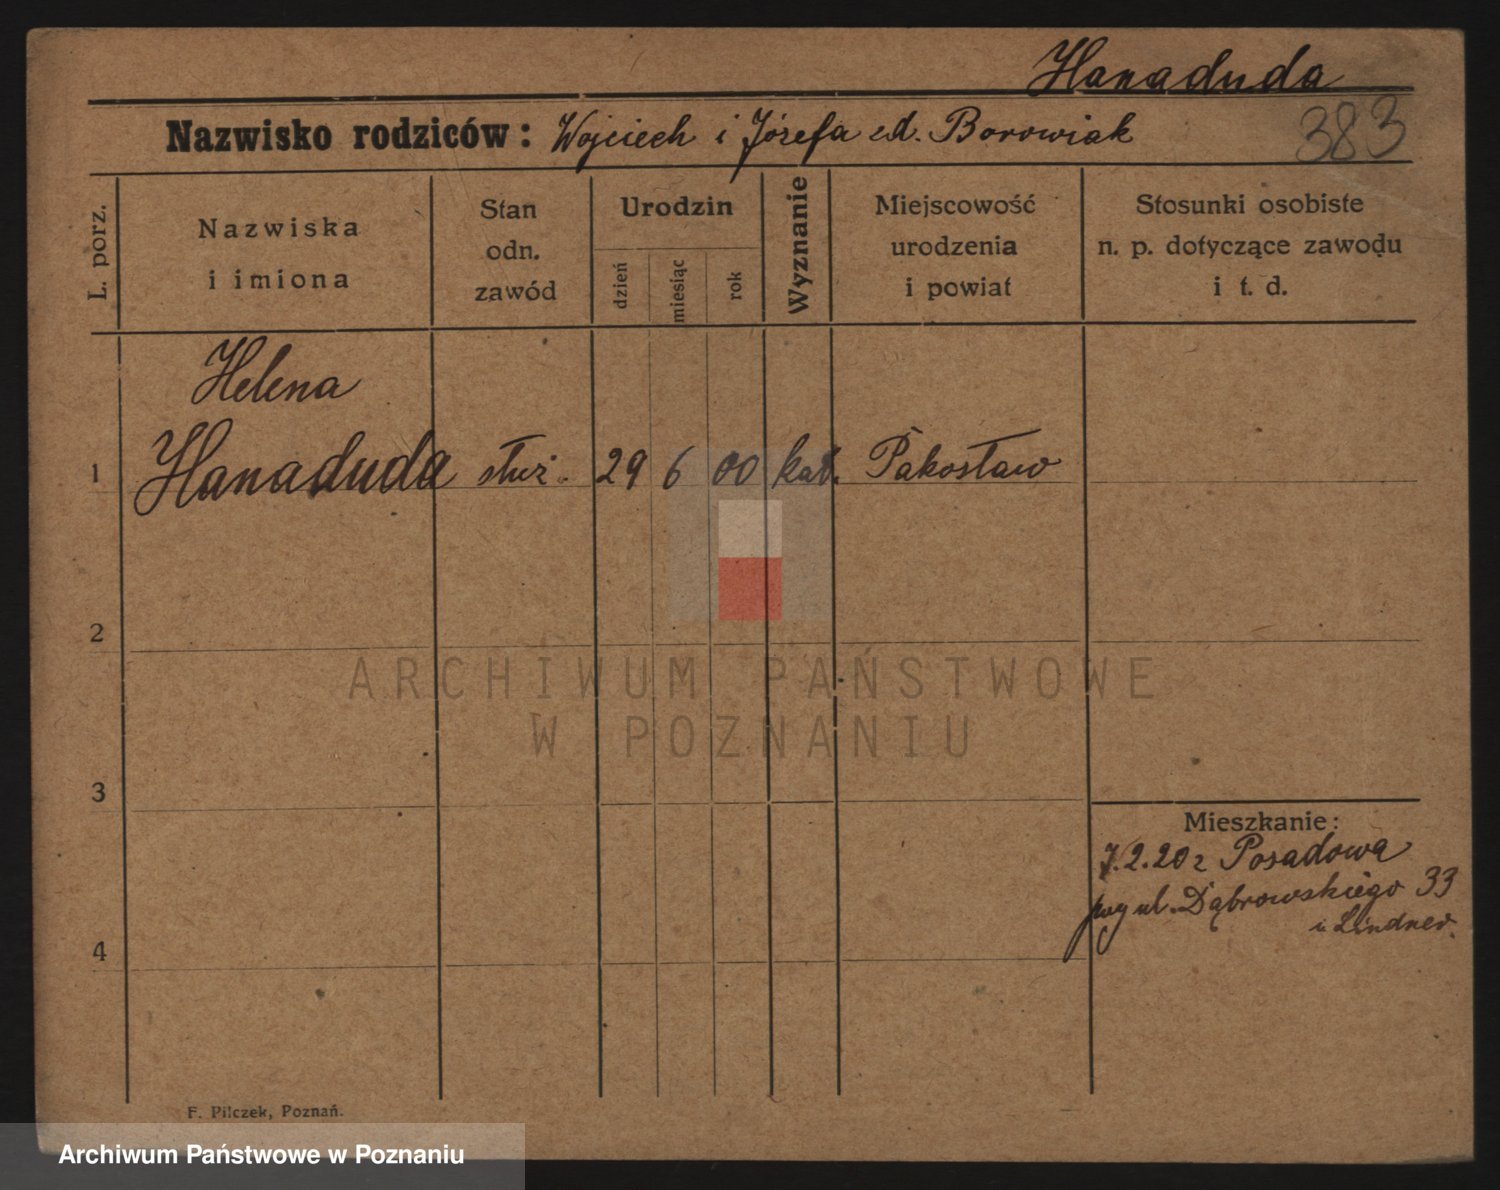 Hanaduda
Nazwisko rodziców: Wojciech i Józefa zd. Borowiak
383
L. porz.
Nazwiska
i imiona
Stan
odn.
zawód
Urodzin
dzień
miesiąc
rok
Wyznanie
Miejscowość
urodzenia
i powiat
Stosunki osobiste
n. p. dotyczące zawodu
i t. d.
Helena
1 Hanaduda służ. 29 6 00 kat. Pakosław
2
ARCHIWUM PAŃSTWOWE
W POZNANIU
3
Mieszkanie:
7.2.20 z Posadowa
przy ul. Dąbrowskiego 33
u Lindner.
4
F. Pilczek, Poznań.
Archiwum Państwowe w Poznaniu